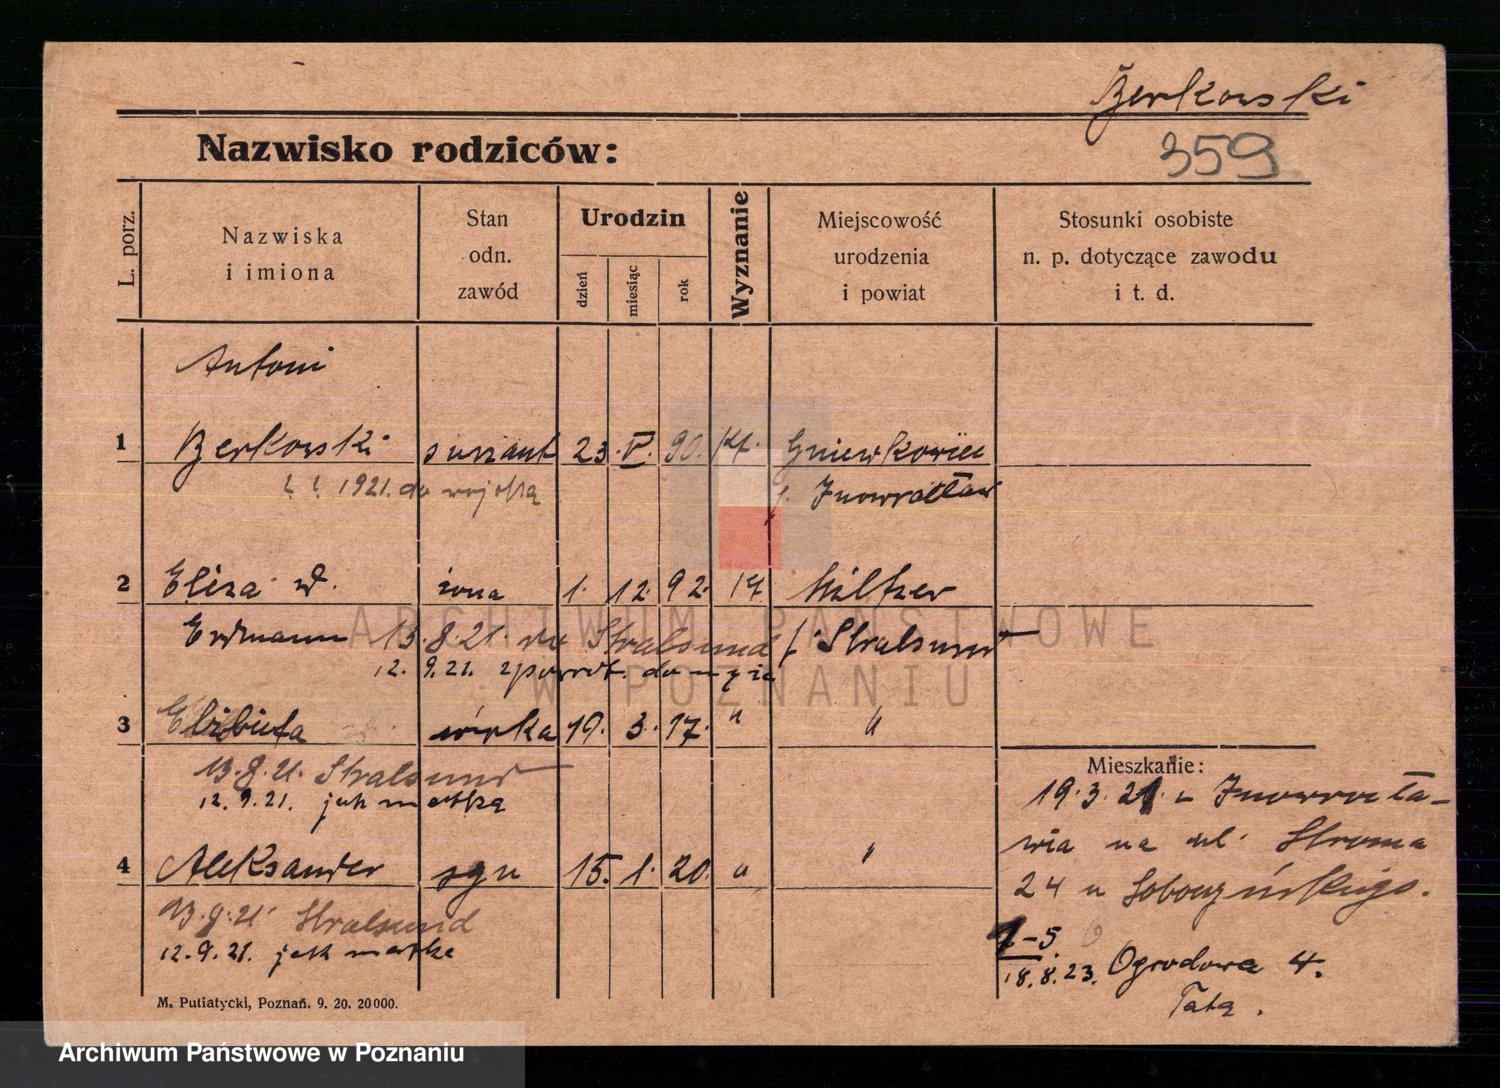 Berkowski
359
Nazwisko rodziców:
L. porz.
Nazwiska
i imiona
Stan
odn.
zawód
Urodzin
dzień
miesiąc
rok
Wyznanie
Miejscowość
urodzenia
i powiat
Stosunki osobiste
n. p. dotyczące zawodu
i t. d.
Antoni
1 Berkowski 23. 90. Kt. Gniewkowiec
1921. do wojska p. Inowrocław
2 Eliza d. żona 1. 12. 92. " Miltzer
Erdmann 13.8.21. do Stralsund p. Stralsund
12. 9.21. z powrot. do męża
3 Elżbieta córka 19. 3. 17. " "
13.8.21. Stralsund
12.9.21. jak matka
4 Aleksander syn 15. 1. 20. " "
13.8.21 Stralsund
12.9.21. jak matka
Mieszkanie:
19.3.21. z Inowrocła-
wia na ul. Stroma
24 u
1-5.
18.8.23. Ogrodowa 4.
M. Putiatycki, Poznań. 9. 20. 20000.
ARCHIWUM PAŃSTWOWE
W POZNANIU
Archiwum Państwowe w Poznaniu